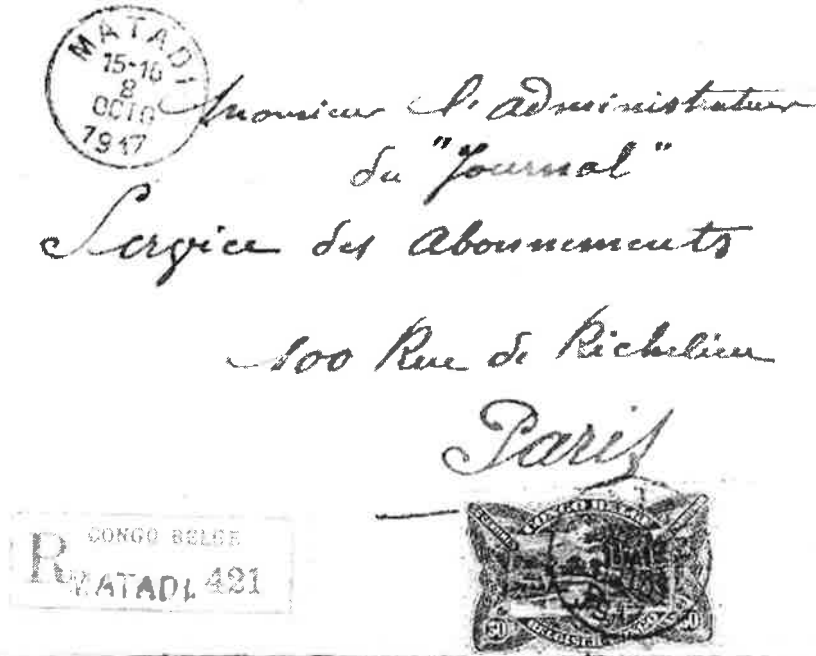 MATADI
15-16
8
OCTO
1917
Monsieur l'administrateur
du "Journal"
Service des abonnements
100 Rue de Richelieu
Paris
CONGO BELGE
R MATADI 421
CONGO BELGE
50 50